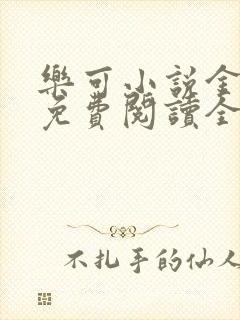 樂可小説全
免費閱讀全
不扎手的仙人